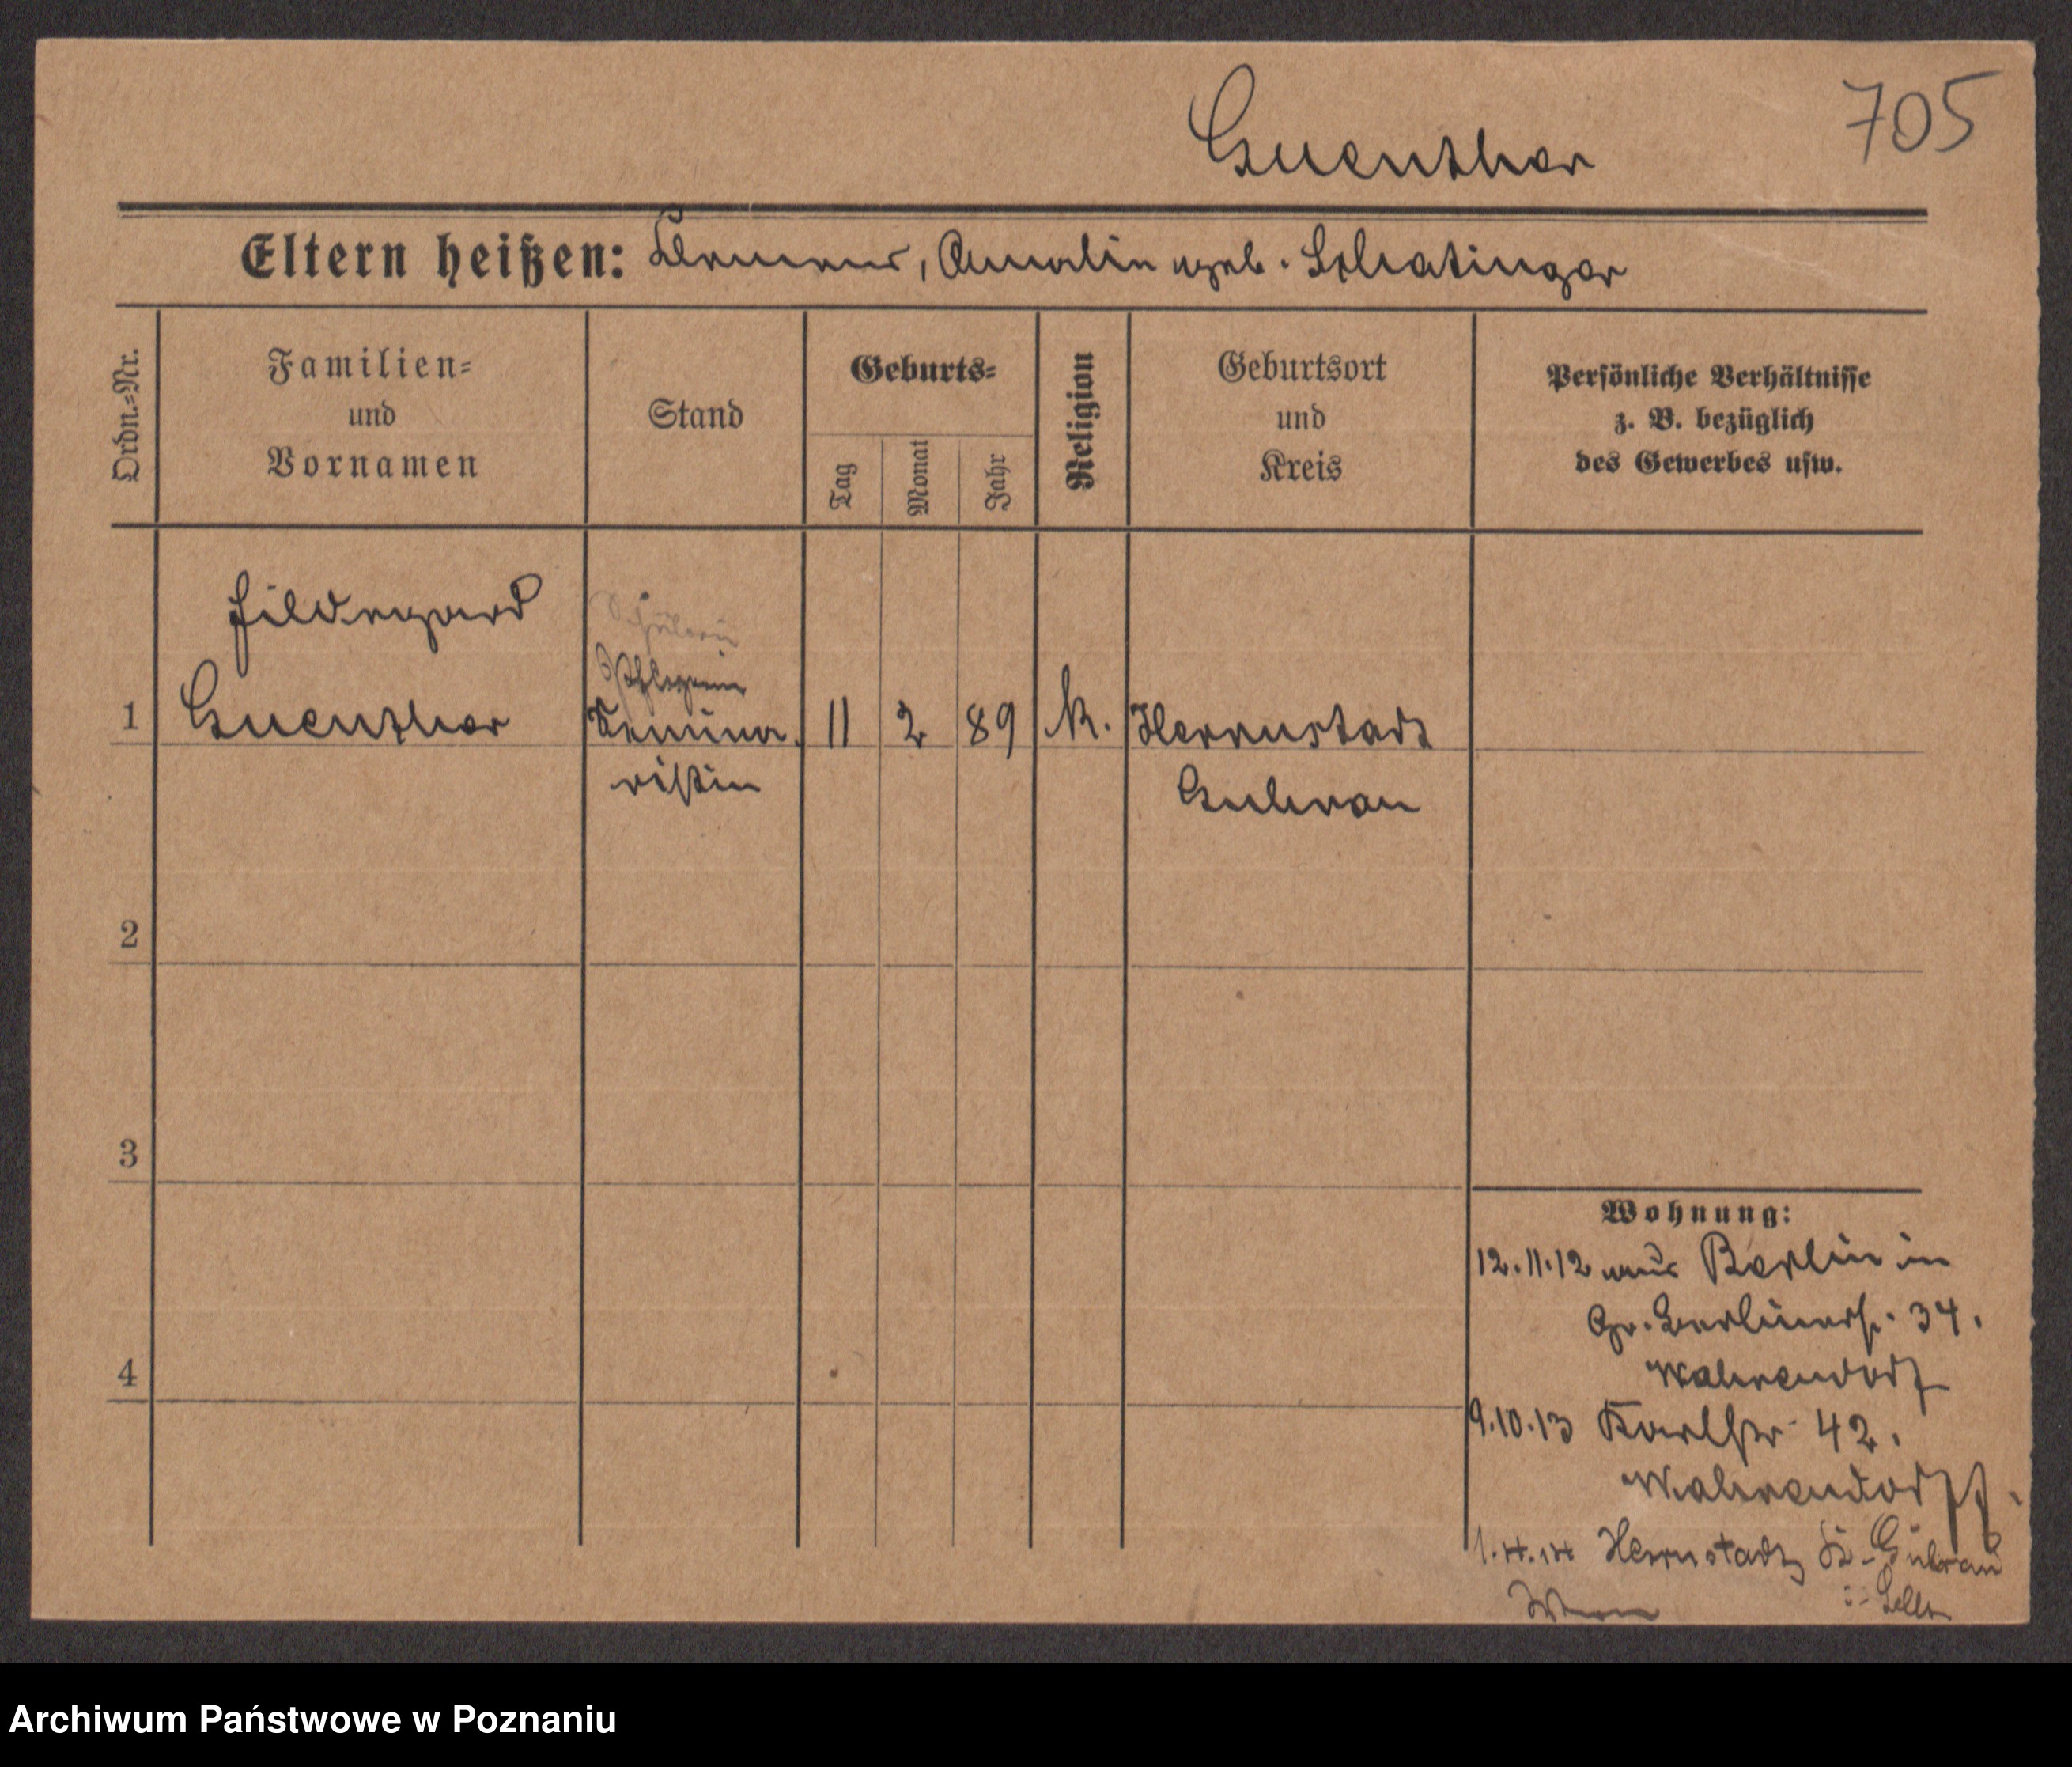 705
Guenther
Eltern heißen: Clemens, Amalie geb. Schatinger
Ordn.=Nr.
Familien=
und
Vornamen
Stand
Geburts=
Tag
Monat
Jahr
Religion
Geburtsort
und
Kreis
Persönliche Verhältnisse
z. B. bezüglich
des Gewerbes usw.
Hildegard
Schülerin
Pflegerin
1 Guenther Semina- 11 2 89 K. Herrnstadt
ristin Guhrau
2
3
4
Wohnung:
12.11.12 aus Berlin in
Gr. Berlinerstr. 34.
Wahrendorf
9.10.13 Karlstr 42.
Wahrendorff.
1.4.14 Herrnstadt Kr. Guhrau
Archiwum Państwowe w Poznaniu